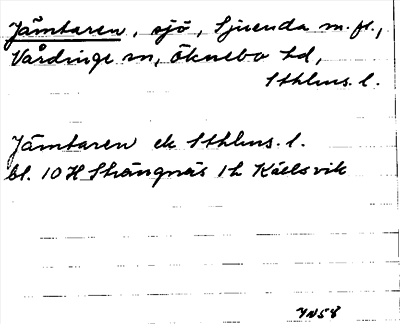 Jämtaren, sjö, Sjuenda m.fl.,
Vårdinge sn, Öknebo hd,
Sthlms. l.
Jämtaren ek Sthlms. l.
bl. 10 H Strängnäs 1h Kåelsvik
YN58